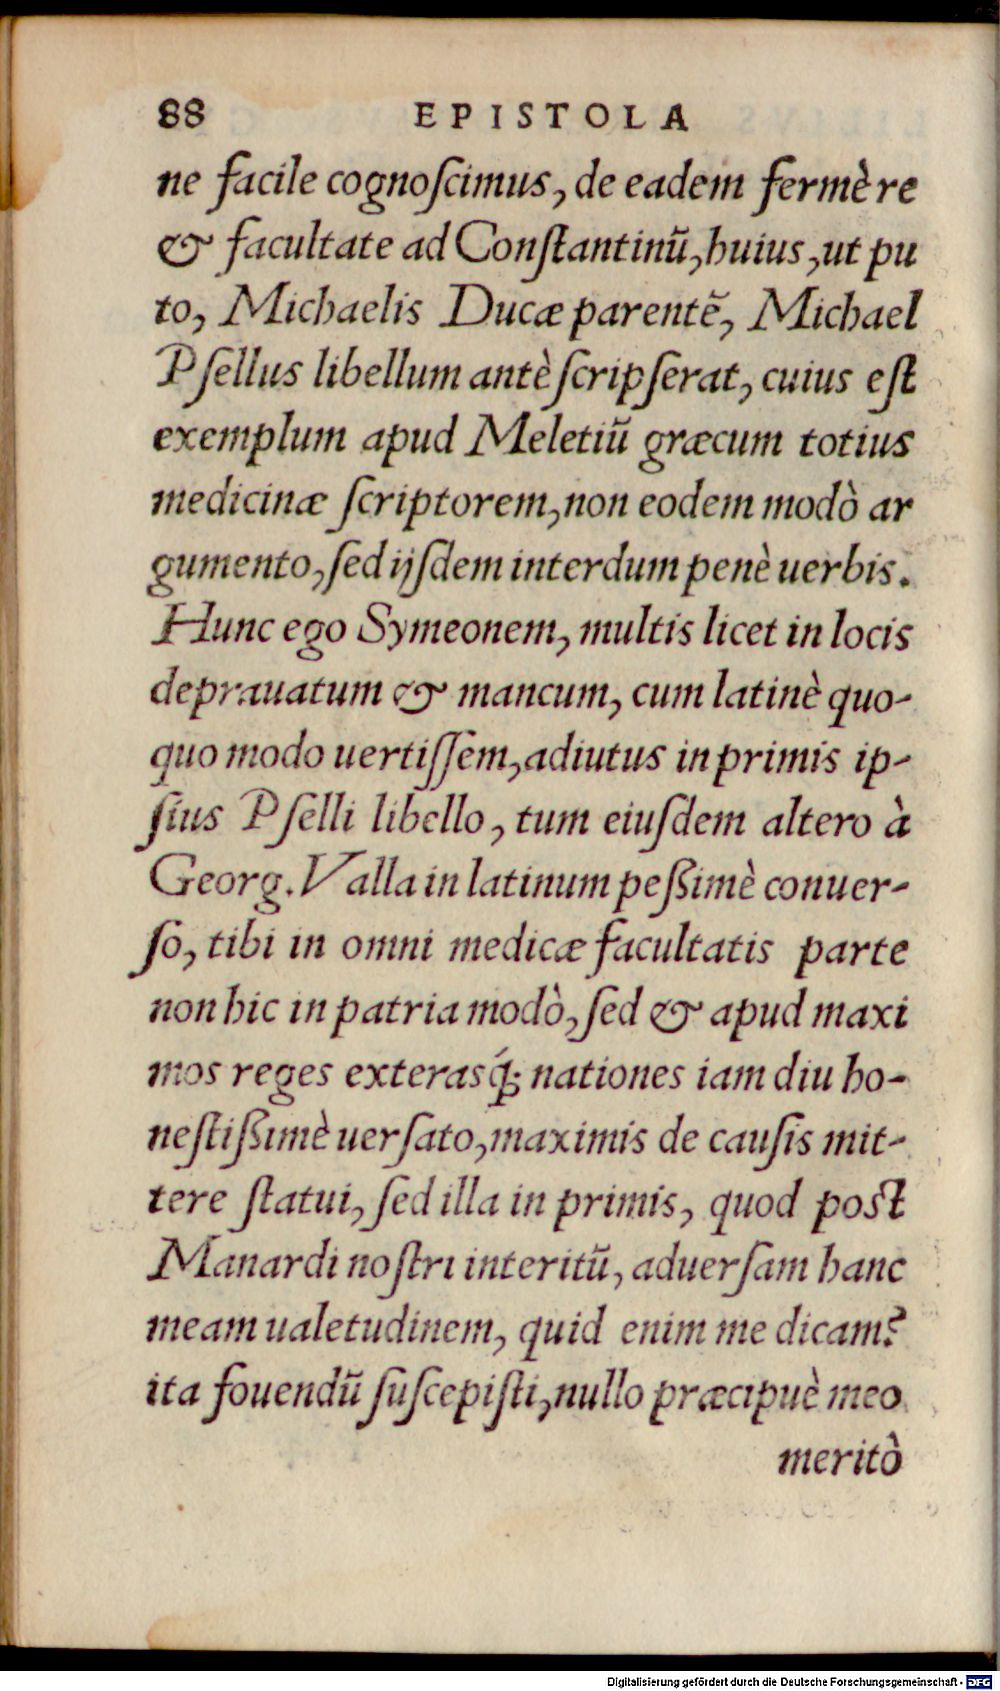 88 EPISTOLA
ne facile cognoſcimus, de eadem fermè re
& facultate ad Conſtantinū, huius, ut pu
to, Michaelis Ducæ parentẽ, Michael
Pſellus libellum antè ſcripſerat, cuius eſt
exemplum apud Meletiū græcum totius
medicinæ ſcriptorem, non eodem modò ar
gumento, ſed ijſdem interdum penè uerbis.
Hunc ego Symeonem, multis licet in locis
deprauatum & mancum, cum latinè quo-
quo modo uertiſſem, adiutus in primis ip-
ſius Pſelli libello, tum eiuſdem altero à
Georg. Valla in latinum peßimè conuer-
ſo, tibi in omni medicæ facultatis parte
non hic in patria modò, ſed & apud maxi
mos reges exterasq́; nationes iam diu ho-
neſtißimè uerſato, maximis de cauſis mit-
tere ſtatui, ſed illa in primis, quod poſt
Manardi noſtri interitū, aduerſam hanc
meam ualetudinem, quid enim me dicam?
ita fouendū ſuſcepiſti, nullo præcipuè meo
meritò
Digitalisierung gefördert durch die Deutsche Forschungsgemeinschaft - DFG